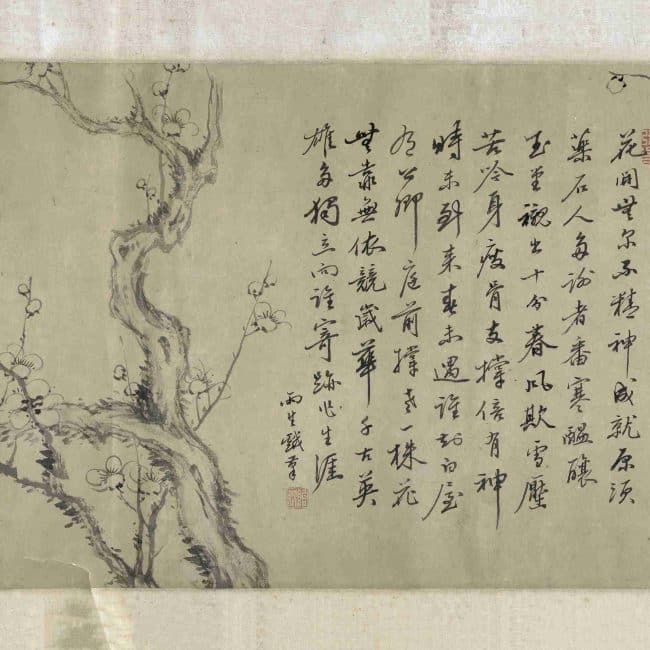 花開無尔不精神成就原須
藥石人多謝者番寒醞釀
玉堂襯出十分春風欺雪壓
苦吟身瘦骨支撐倍有神
時未到來春未遇誰知白屋
有公卿庭前撐老一株花
無靠無依競歲華千古英
雄多獨立向誰寄跡生涯
雨生戲筆